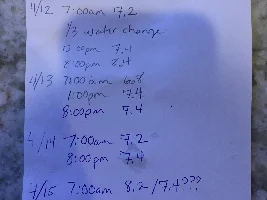 4/12 7:00am 7.2
1/3 water change
7.4
8:00pm 7.4
4/13 7:00am
1:00pm 7.4
8:00pm 7.4
4/14 7:00am 7.2
8:00pm 7.4
4/15 7:00am 8.2/7.4???